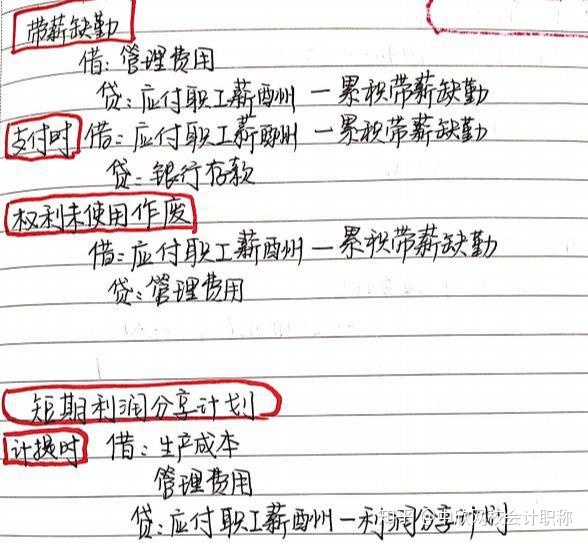 带薪缺勤
借:管理费用
贷:应付职工薪酬—累积带薪缺勤
支付时 借:应付职工薪酬—累积带薪缺勤
贷:银行存款
权利未使用作废
借:应付职工薪酬—累积带薪缺勤
贷:管理费用
短期利润分享计划
计提时 借:生产成本
管理费用
贷:应付职工薪酬—利润分享计划
知乎 网校会计职称